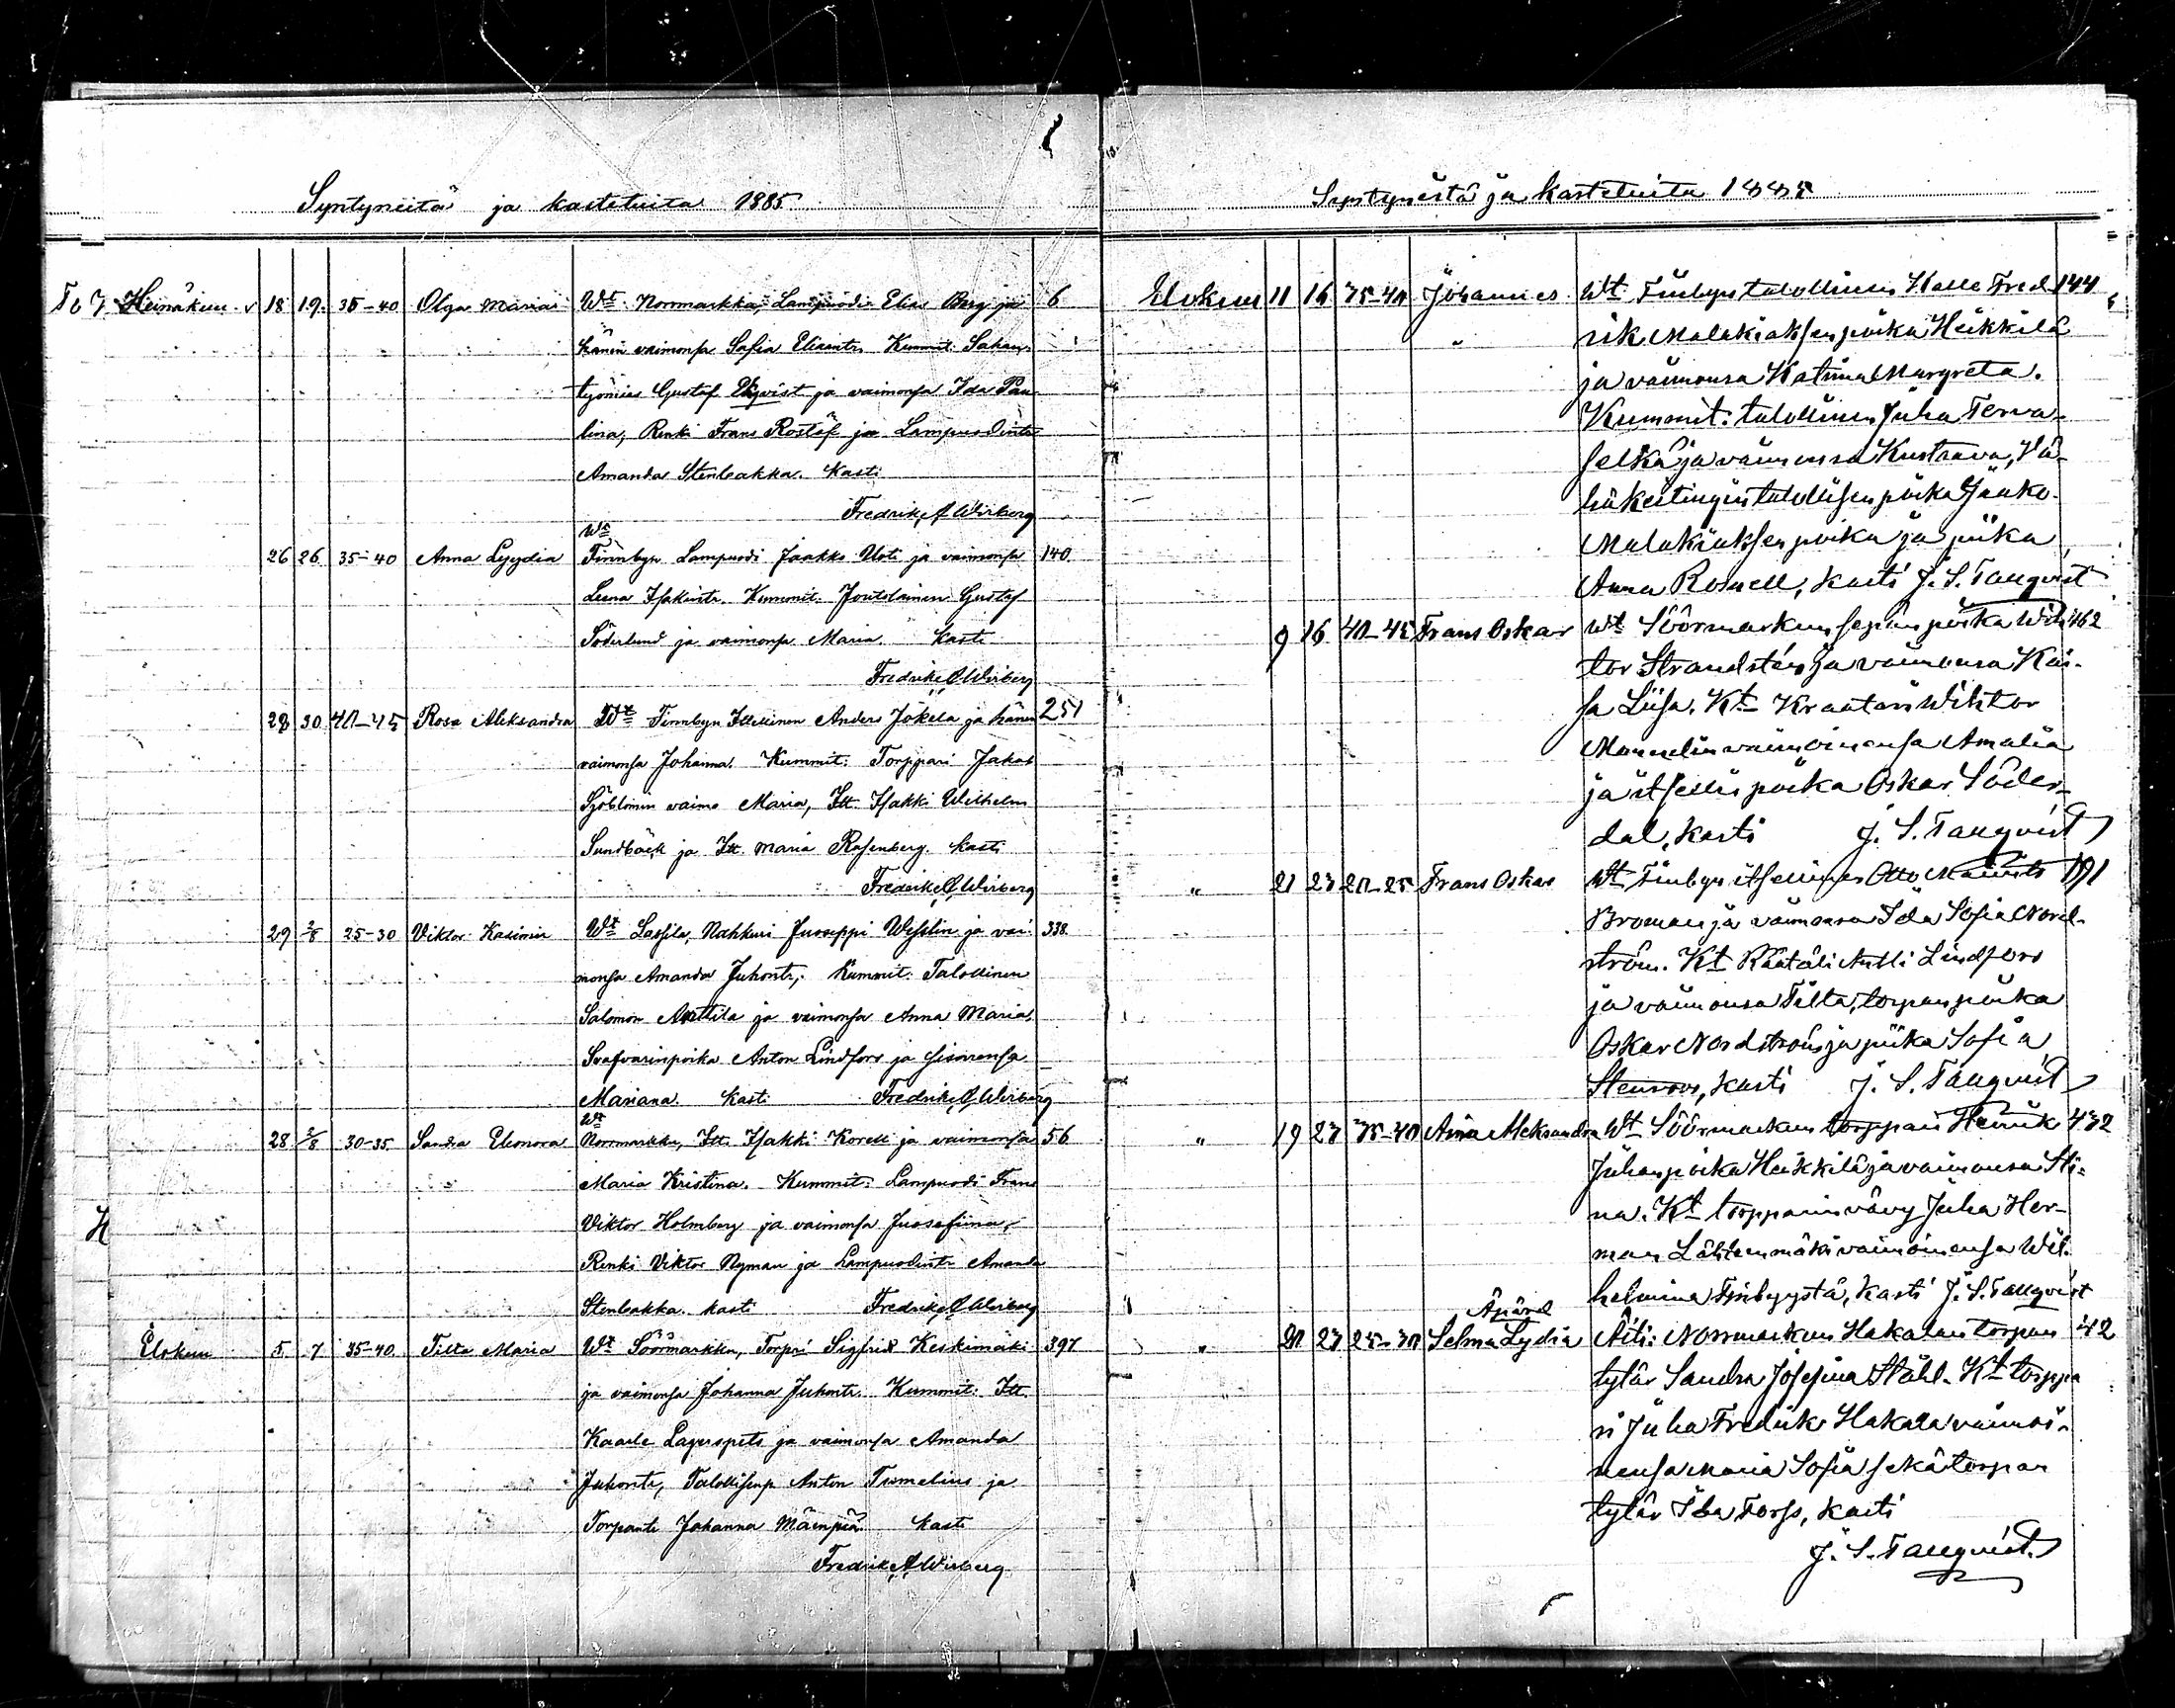 Syntyneitä ja kastetuita 1885
Heinäkuu 18 19. 35-40 Olga Maria Wt. Norrmarkka, Lampuodi Elias Berg ja 6
hänen vaimonsa Sofia Eliaintr. Kummit: Sahan-
työmies Gustaf Ekqvist ja vaimonsa Ida Pau-
lina, Renki Frans Rostöf ja Lampuodintr
Amanda Stenbakka. Kasti
Fredrik A Wirberg
Wt
26 26 35-40 Anna Lyydia Finnbyn Lampuodi Jaakko Uoti ja vaimonsa 140.
Leena Isakintr. Kummit: Joutolainen Gustaf
Söderlund ja vaimonsa Maria. Kasti
Fredrik A Wirberg
28 30 40-45 Rosa Aleksandra Wt Finnbyn Itsellinen Anders Jokela ja hänen 251
vaimonsa Johanna. Kummit: Torppari Jakob
Sjöblomin vaimo Maria, Itt. Isakki Wilhelm
Sundbäck ja Itt. Maria Rosenberg. Kasti
Fredrik A Wirberg
29 2/8 25-30 Viktor Kasimir Wt Lassila, Nahkuri Juseppi Wesslin ja vai- 338.
monsa Amanda Juhontr. Kummit: Talollinen
Salomon Anttila ja vaimonsa Anna Maria,
Svafvarinpoika Anton Lindfors ja sisarensa
Mariana. Kasti Fredrik A Wirberg
Wt
28 2/8 30-35. Sandra Eleonora Norrmarkku, Itt. Isakki Korell ja vaimonsa 56
Maria Kristina. Kummit: Lampuodi Frans
Viktor Holmberg ja vaimonsa Juosefiina,
Renki Viktor Nyman ja Lampuodintr Amanda
Stenbakka. kasti Fredrik A Wirberg
Elokuu 5. 7 35-40. Tilta Maria Wt Söörmarkku, Torpri Sigfrid Keskimäki 397
ja vaimonsa Johanna Juhontr. Kummit: Itt.
Kaarle Lagerspets ja vaimonsa Amanda
Juhontr, Talollisenp. Anton Tumelius ja
Torparitr Johanna Mäenpää. Kasti
Fredrik A Wirberg
Syntyneitä ja kastetuita 1885
Elokuu 11 16 35-40 Johannes Wt Finbyn talollinen Kalle Fred- 144
rik Malakiaksenpoika Heikkilä
ja vaimonsa Katrina Margreta.
Kummit: talollinen Juha Terva-
selkä ja vaimonsa Kustaava, Vä-
häkestingin talollisen poika Jaako
Malakiaksen poika ja piika
Anna Rosnell, kasti J. S. Tanqvist
9 16 40-45 Frans Oskar Wt Söörmarkun sepän poika Wih- 462
tor Strandstén ja vaimonsa Kai-
sa Liisa. Kt Kraatari Wihtor
Manneliin vaimoinensa Amalia
ja itsellis poika Oskar Söder-
dal, kasti J. S. Tanqvist
" 21 23 20-25 Frans Oskar Wt Finbyn itsellinen Otto Maurits 191
Broman ja vaimonsa Ida Sofia Nord-
ström. Kt Räätäli Antti Lindfors
ja vaimonsa Tilta, torpan poika
Oskar Nordström ja piika Sofia
Stenroos, kasti J. S. Tanqvist
" 19 23 35-40 Aina Aleksandra Wt Söörmarkun torppari Henrik 432
Juhanpoika Heikkilä ja vaimonsa Sti-
na. Kt torpparin vävy Juha Her-
man Lähteenmäki vaimoinensa Wil-
helmina Finbyystä, kasti J. S. Tanqvist
Äpärä
" 20 23 25-30 Selma Lydia Äiti: Norrmarkun Hakalan torpan 42
tytär Sandra Josefina Ståhl. Kt torppa
ri Juha Fredrik Hakala vaimoi-
nensa Maria Sofia sekä torpan
tytär Ida Forss, kasti
J. S. Tanqvist.